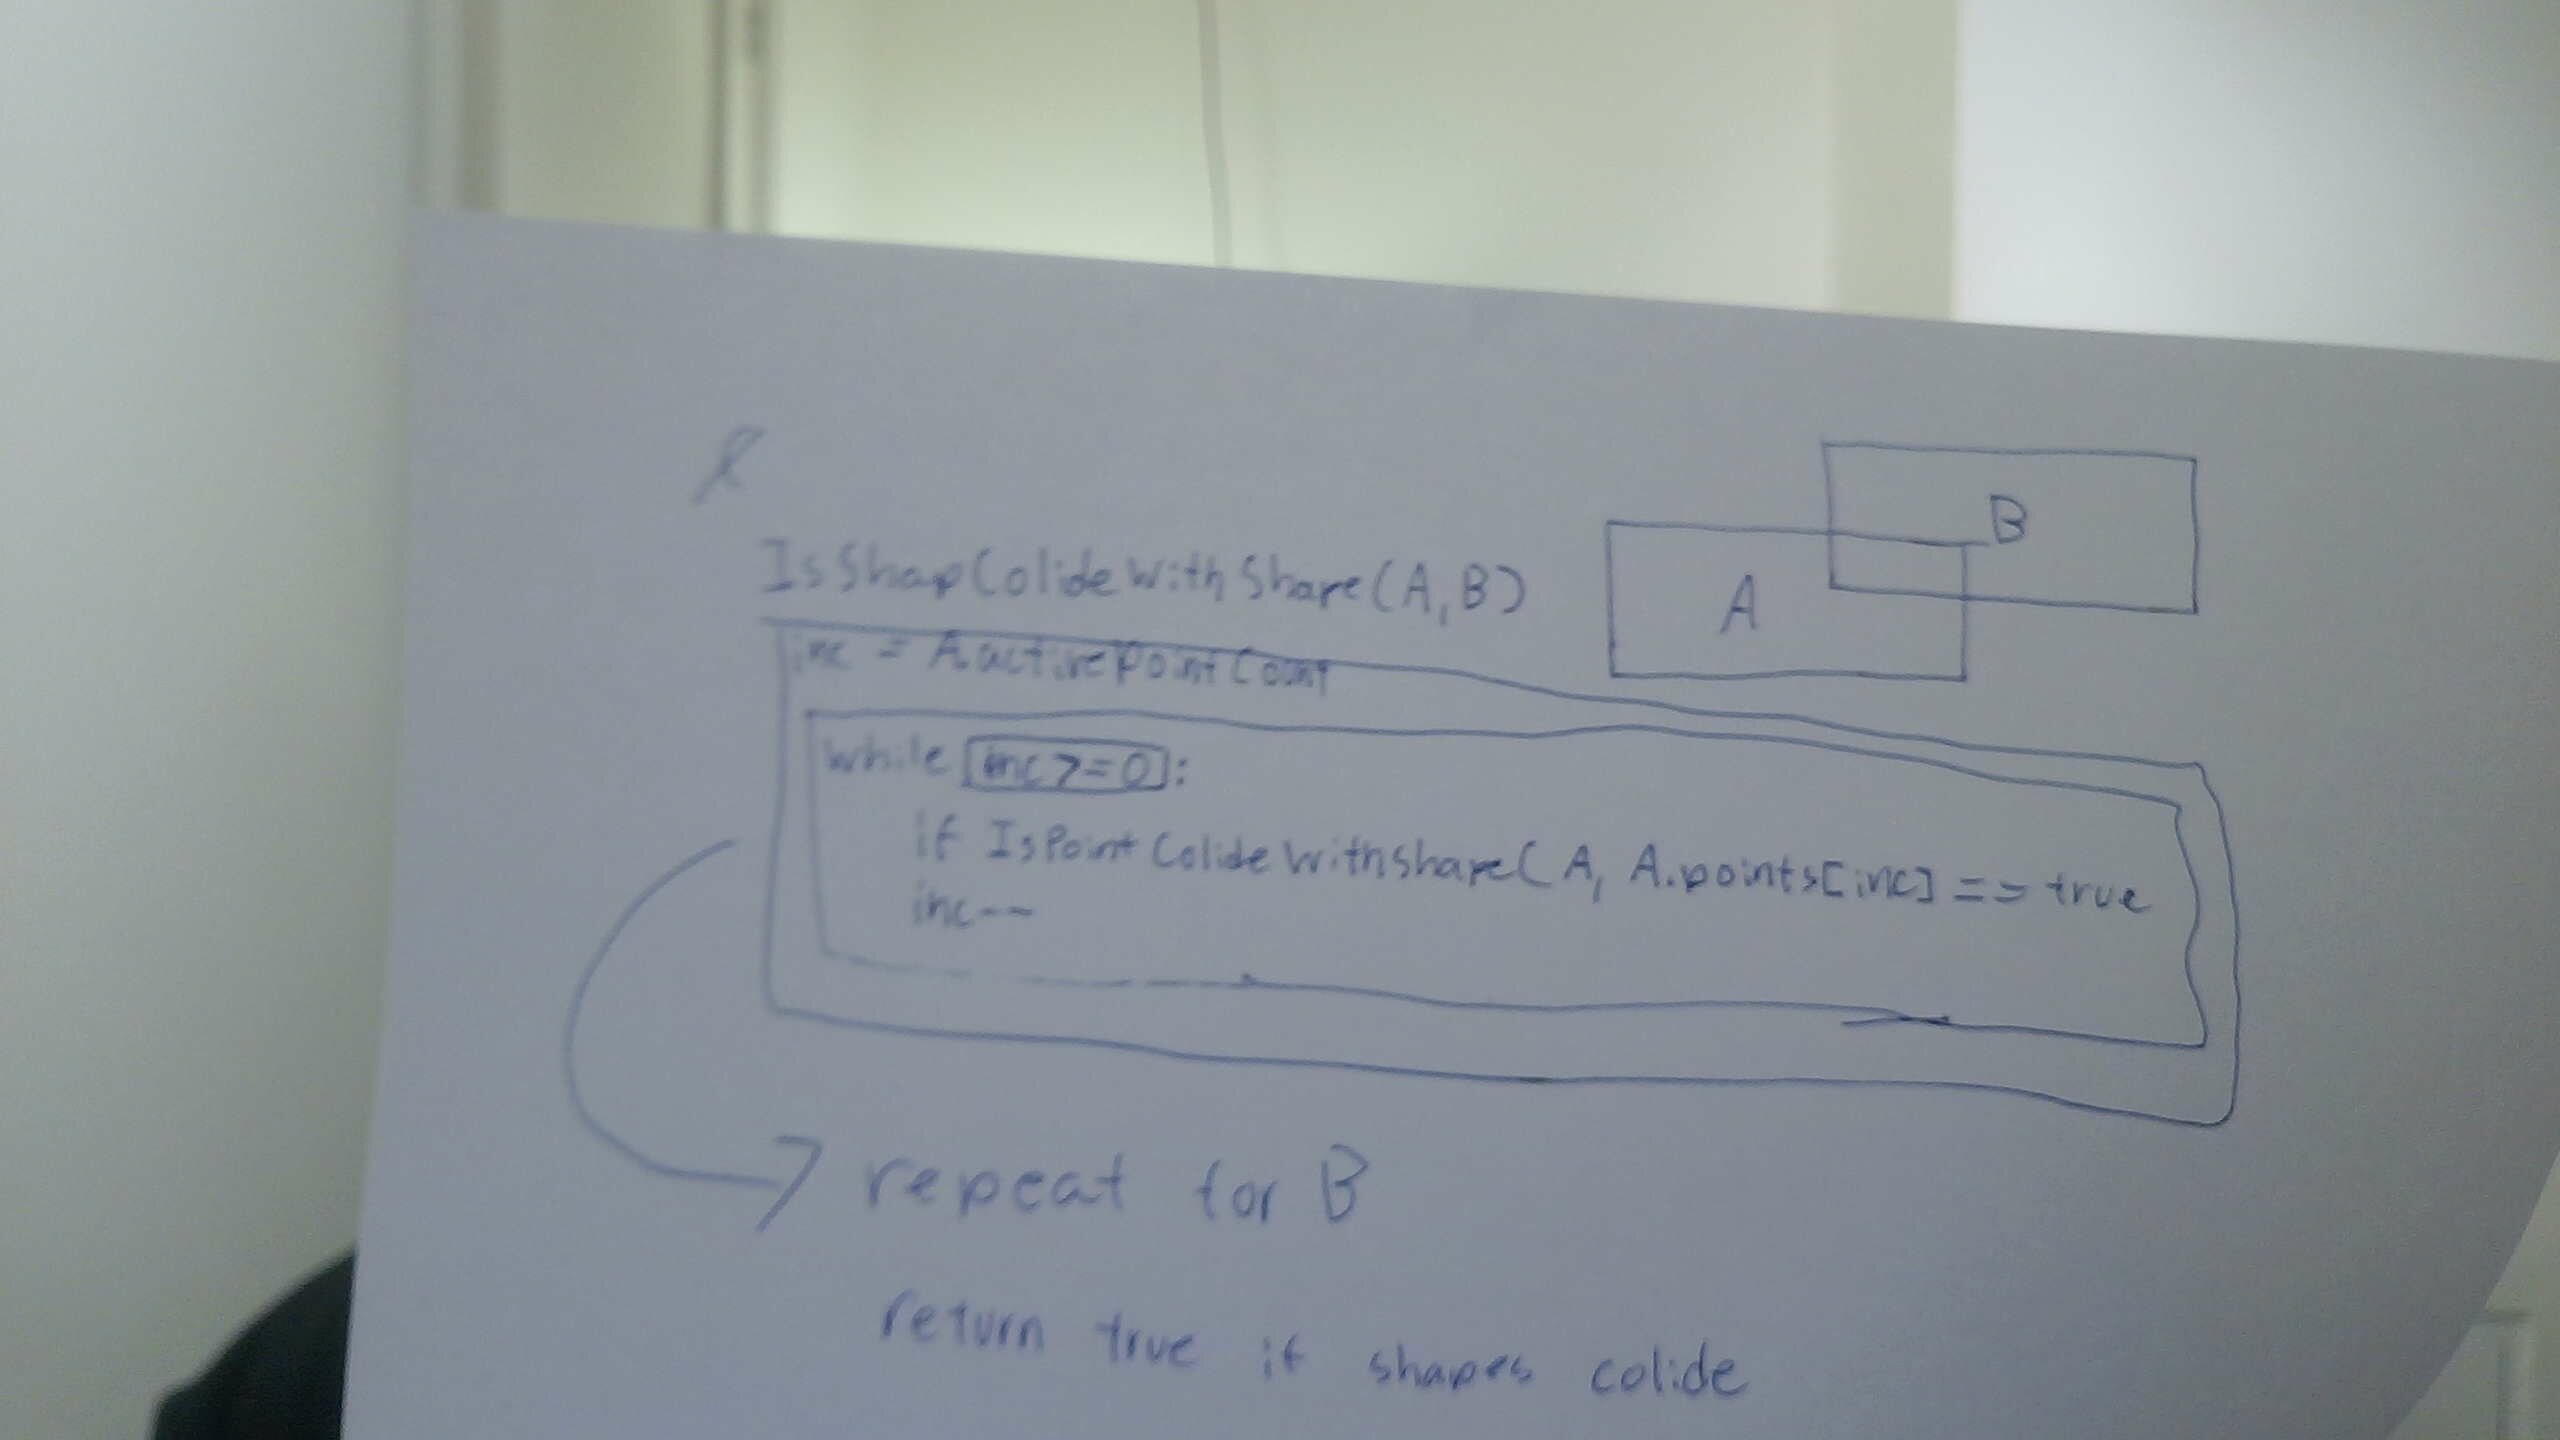 IsShapColideWithShape(A,B)
B
A
inc = A.activePointCount
while inc>=0:
if IsPointColideWithshape(A, A.points[inc] == true
inc--
repeat for B
return true if shapes colide